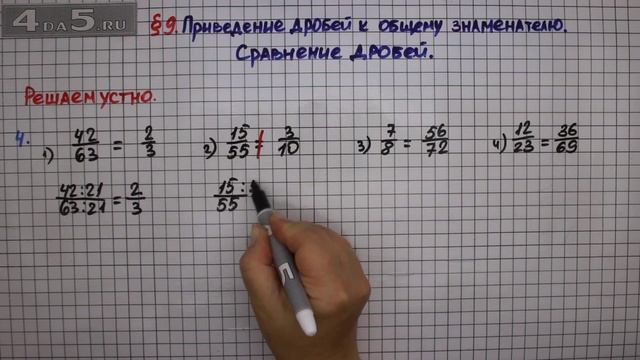 4DA5.RU
§9. Приведение дробей к общему знаменателю.
Сравнение дробей.
Решаем устно.
4. 1) 42/63 = 2/3 2) 15/55 ≠ 3/10 3) 7/8 = 56/72 4) 12/23 = 36/69
42:21/63:21 = 2/3 15:/55